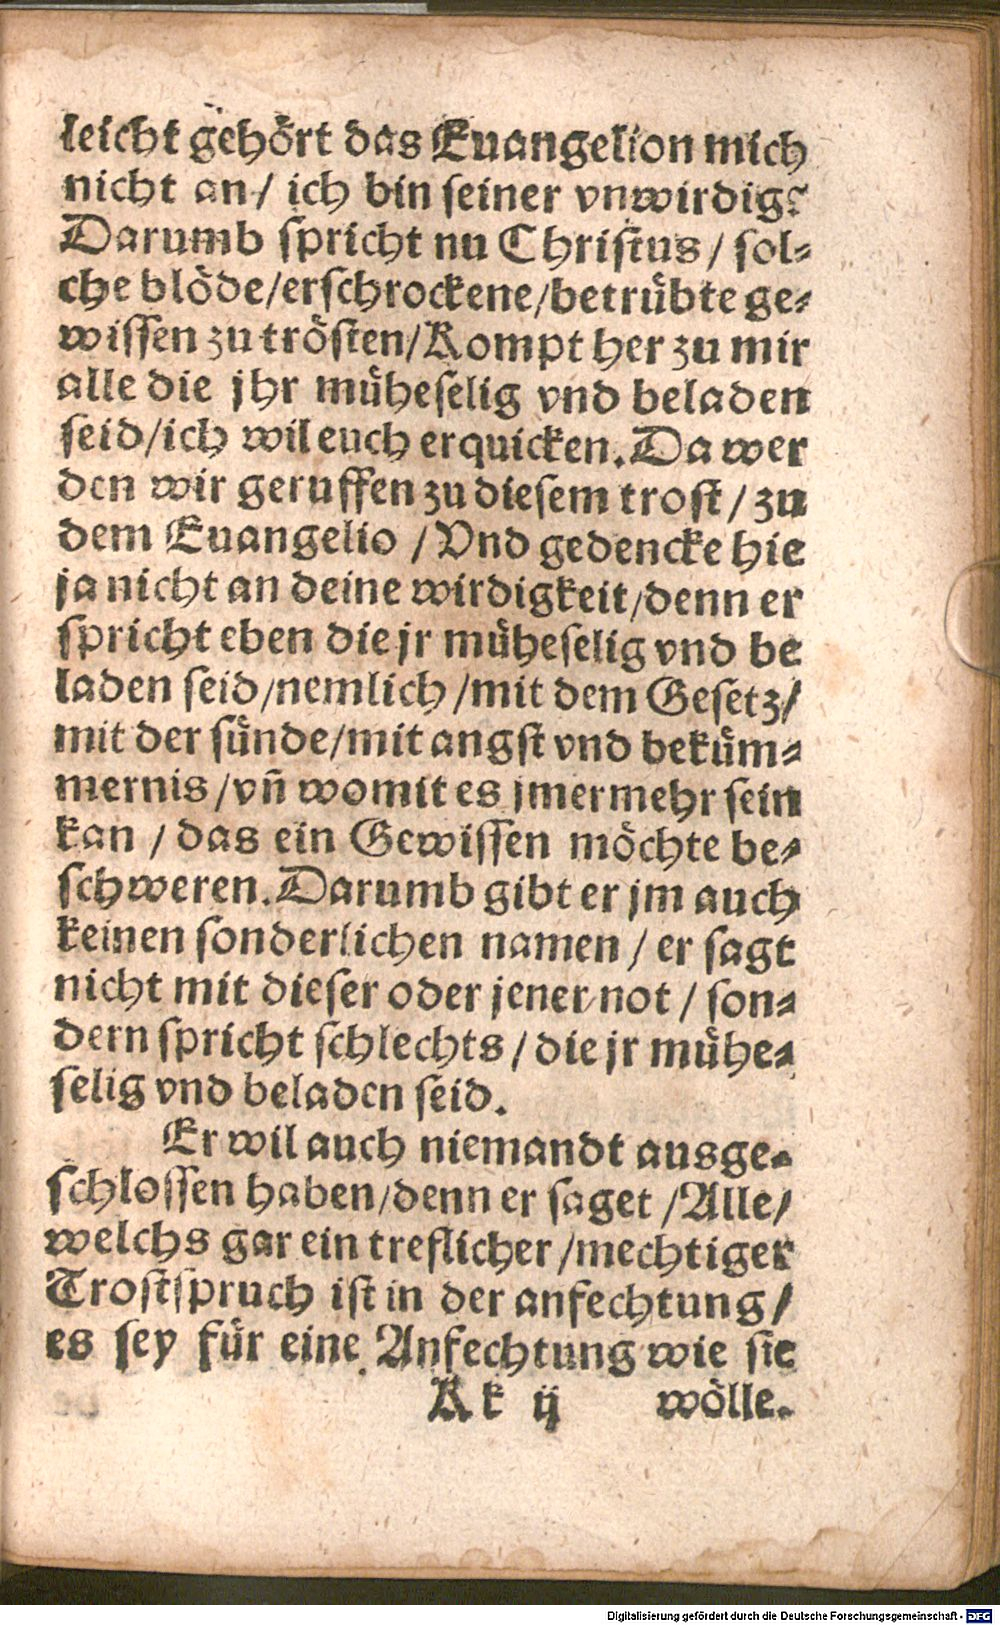 leicht gehört das Euangelion mich
nicht an/ ich bin seiner vnwirdig?
Darumb spricht nu Christus/ sol-
che blöde/erschrockene/betrübte ge-
wissen zu trösten/Kompt her zu mir
alle die jhr müheselig vnd beladen
seid/ich wil euch erquicken. Da wer
den wir geruffen zu diesem trost/ zu
dem Euangelio /Vnd gedencke hie
ja nicht an deine wirdigkeit/denn er
spricht eben die jr müheselig vnd be
laden seid/nemlich/mit dem Gesetz/
mit der sünde/mit angst vnd beküm-
mernis/vñ womit es jmermehr sein
kan/ das ein Gewissen möchte be-
schweren. Darumb gibt er jm auch
keinen sonderlichen namen/ er sagt
nicht mit dieser oder jener not/ son-
dern spricht schlechts/die jr mühe-
selig vnd beladen seid.
Er wil auch niemandt ausge-
schlossen haben/denn er saget /Alle/
welchs gar ein treflicher/mechtiger
Trostspruch ist in der anfechtung/
es sey für eine Anfechtung wie sie
Kk ij wölle.
Digitalisierung gefördert durch die Deutsche Forschungsgemeinschaft - DFG